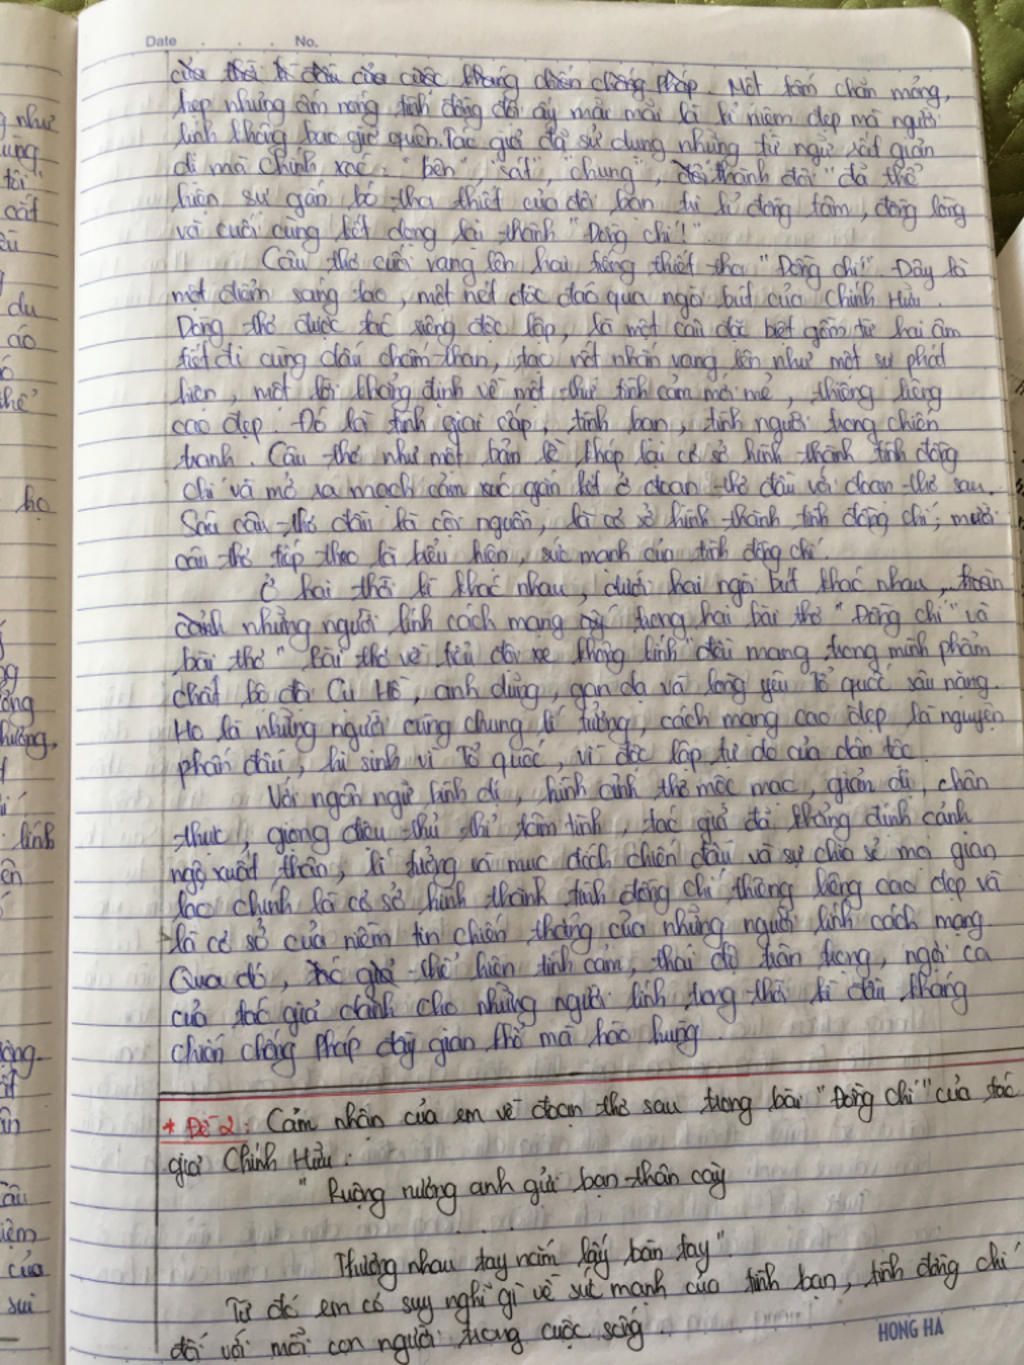 Date . . . No.
của thời kì đầu của cuộc kháng chiến chống Pháp. Một tấm chăn mỏng,
hẹp nhưng ấm nóng tình đồng đội ấy mãi mãi là kỉ niệm đẹp mà người
lính không bao giờ quên. Tác giả đã sử dụng những từ ngữ rất giản
dị mà chính xác: "bên", "sát", "chung", "thành đôi" đã thể
hiện sự gắn bó tha thiết của đôi bạn tri kỉ đồng tâm, đồng lòng
và cuối cùng kết đọng lại thành "Đồng chí!".
Câu thơ cuối vang lên hai tiếng thiết tha "Đồng chí!" Đây là
một điểm sáng tạo, một nét độc đáo qua ngòi bút của Chính Hữu.
Dòng thơ được tác riêng độc lập, là một câu đặc biệt gồm từ hai âm
tiết đi cùng dấu chấm than, tạo nét nhấn vang lên như một sự phát
hiện, một lời khẳng định về một thứ tình cảm mới mẻ, thiêng liêng
cao đẹp. Đó là tình giai cấp, tình bạn, tình người trong chiến
tranh. Câu thơ như một bản lề khép lại cơ sở hình thành tình đồng
chí và mở ra mạch cảm xúc gắn kết ở đoạn thơ đầu với đoạn thơ sau.
Sáu câu thơ đầu là cội nguồn, là cơ sở hình thành tình đồng chí; mười
câu thơ tiếp theo là biểu hiện, sức mạnh của tình đồng chí.
Ở hai thời kì khác nhau, dưới hai ngòi bút khác nhau, hoàn
cảnh những người lính cách mạng trong hai bài thơ "Đồng chí" và
bài thơ "Bài thơ về tiểu đội xe không kính" đều mang trong mình phẩm
chất bộ đội Cụ Hồ, anh dũng, gan dạ và lòng yêu Tổ quốc sâu nặng.
Họ là những người cùng chung lí tưởng, cách mạng cao đẹp là nguyện
phấn đấu, hi sinh vì Tổ quốc, vì độc lập tự do của dân tộc.
Với ngôn ngữ bình dị, hình ảnh thơ mộc mạc, giản dị, chân
thực, giọng điệu thủ thỉ tâm tình, tác giả đã khẳng định cảnh
ngộ xuất thân, lí tưởng và mục đích chiến đấu và sự chia sẻ mọi gian
lao chính là cơ sở hình thành tình đồng chí thiêng liêng cao đẹp và
là cơ sở của niềm tin chiến thắng của những người lính cách mạng.
Qua đó, tác giả thể hiện tình cảm, thái độ trân trọng, ngợi ca
của tác giả dành cho những người lính trong thời kì đầu kháng
chiến chống Pháp đầy gian khổ mà hào hùng.
* Đề 2: Cảm nhận của em về đoạn thơ sau trong bài "Đồng chí" của tác
giả Chính Hữu:
"Ruộng nương anh gửi bạn thân cày
. . .
Thương nhau tay nắm lấy bàn tay".
Từ đó em có suy nghĩ gì về sức mạnh của tình bạn, tình đồng chí
đối với mỗi con người trong cuộc sống.
HONG HA